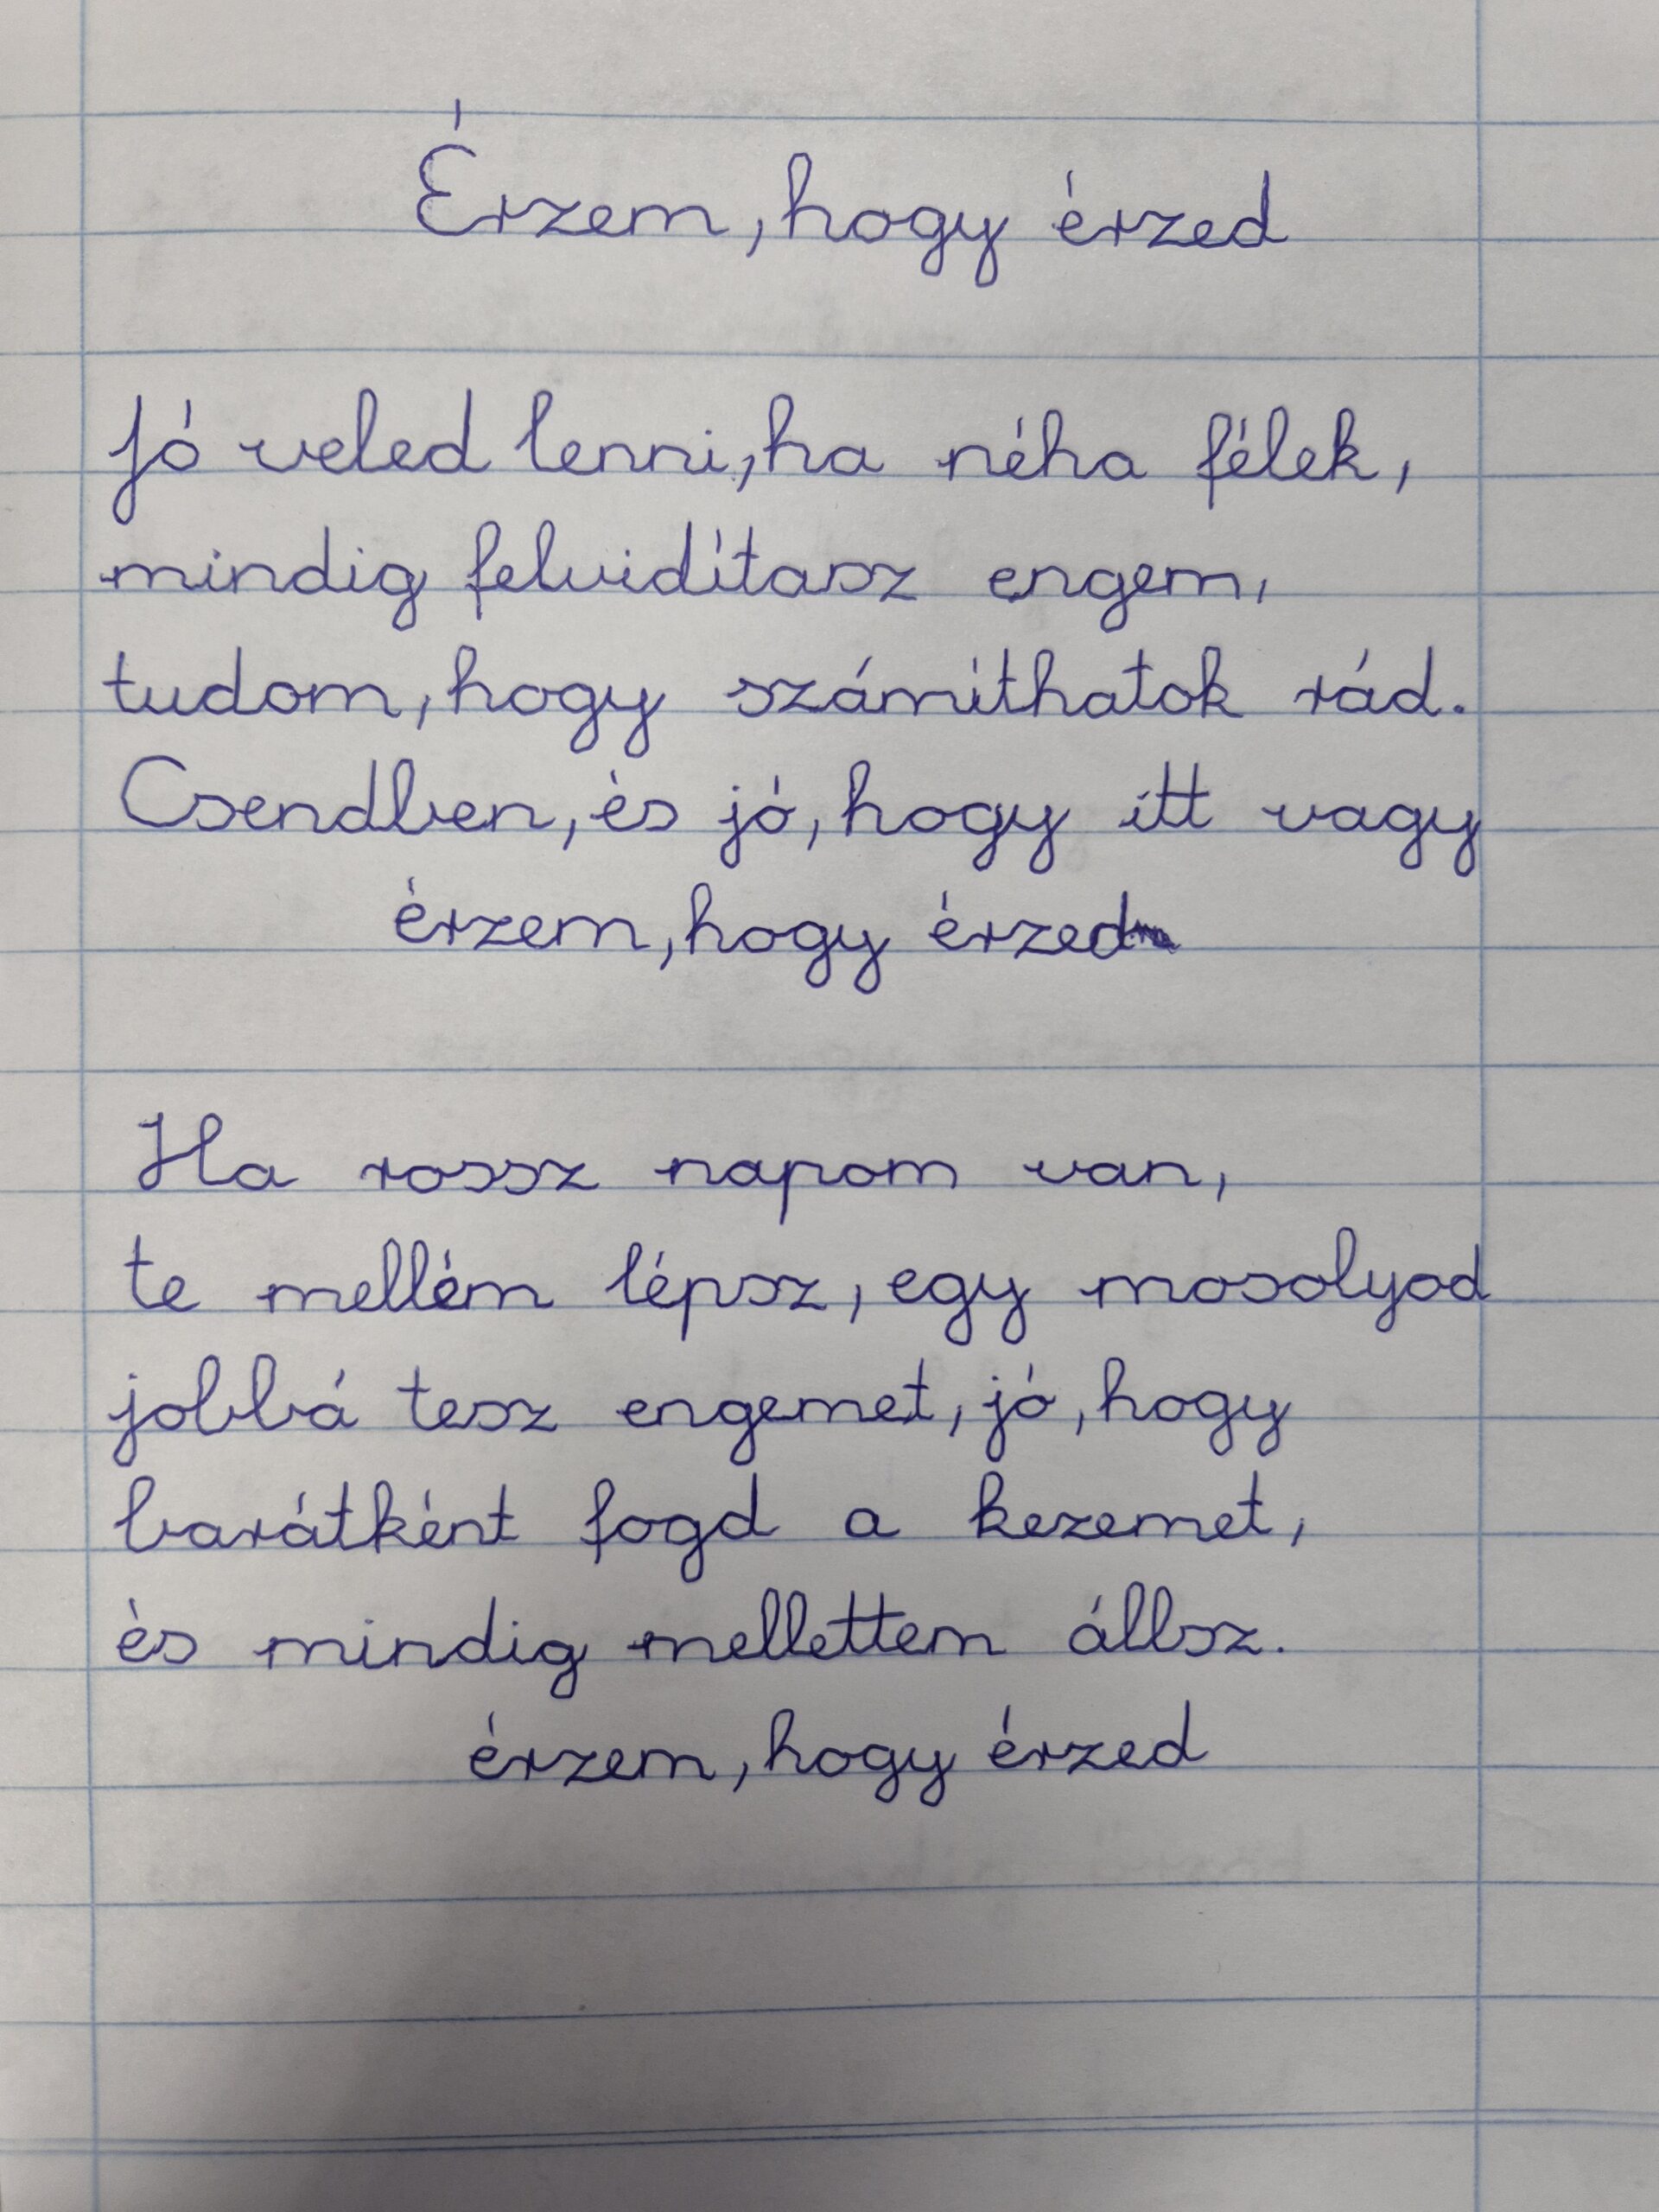 Érzem, hogy érzed
Jó veled lenni, ha néha félek,
mindig felvidítasz engem,
tudom, hogy számíthatok rád.
Csendben, és jó, hogy itt vagy
érzem, hogy érzed
Ha rossz napom van,
te mellém lépsz, egy mosolyod
jobbá tesz engemet, jó, hogy
barátként fogd a kezemet,
és mindig mellettem állsz.
érzem, hogy érzed